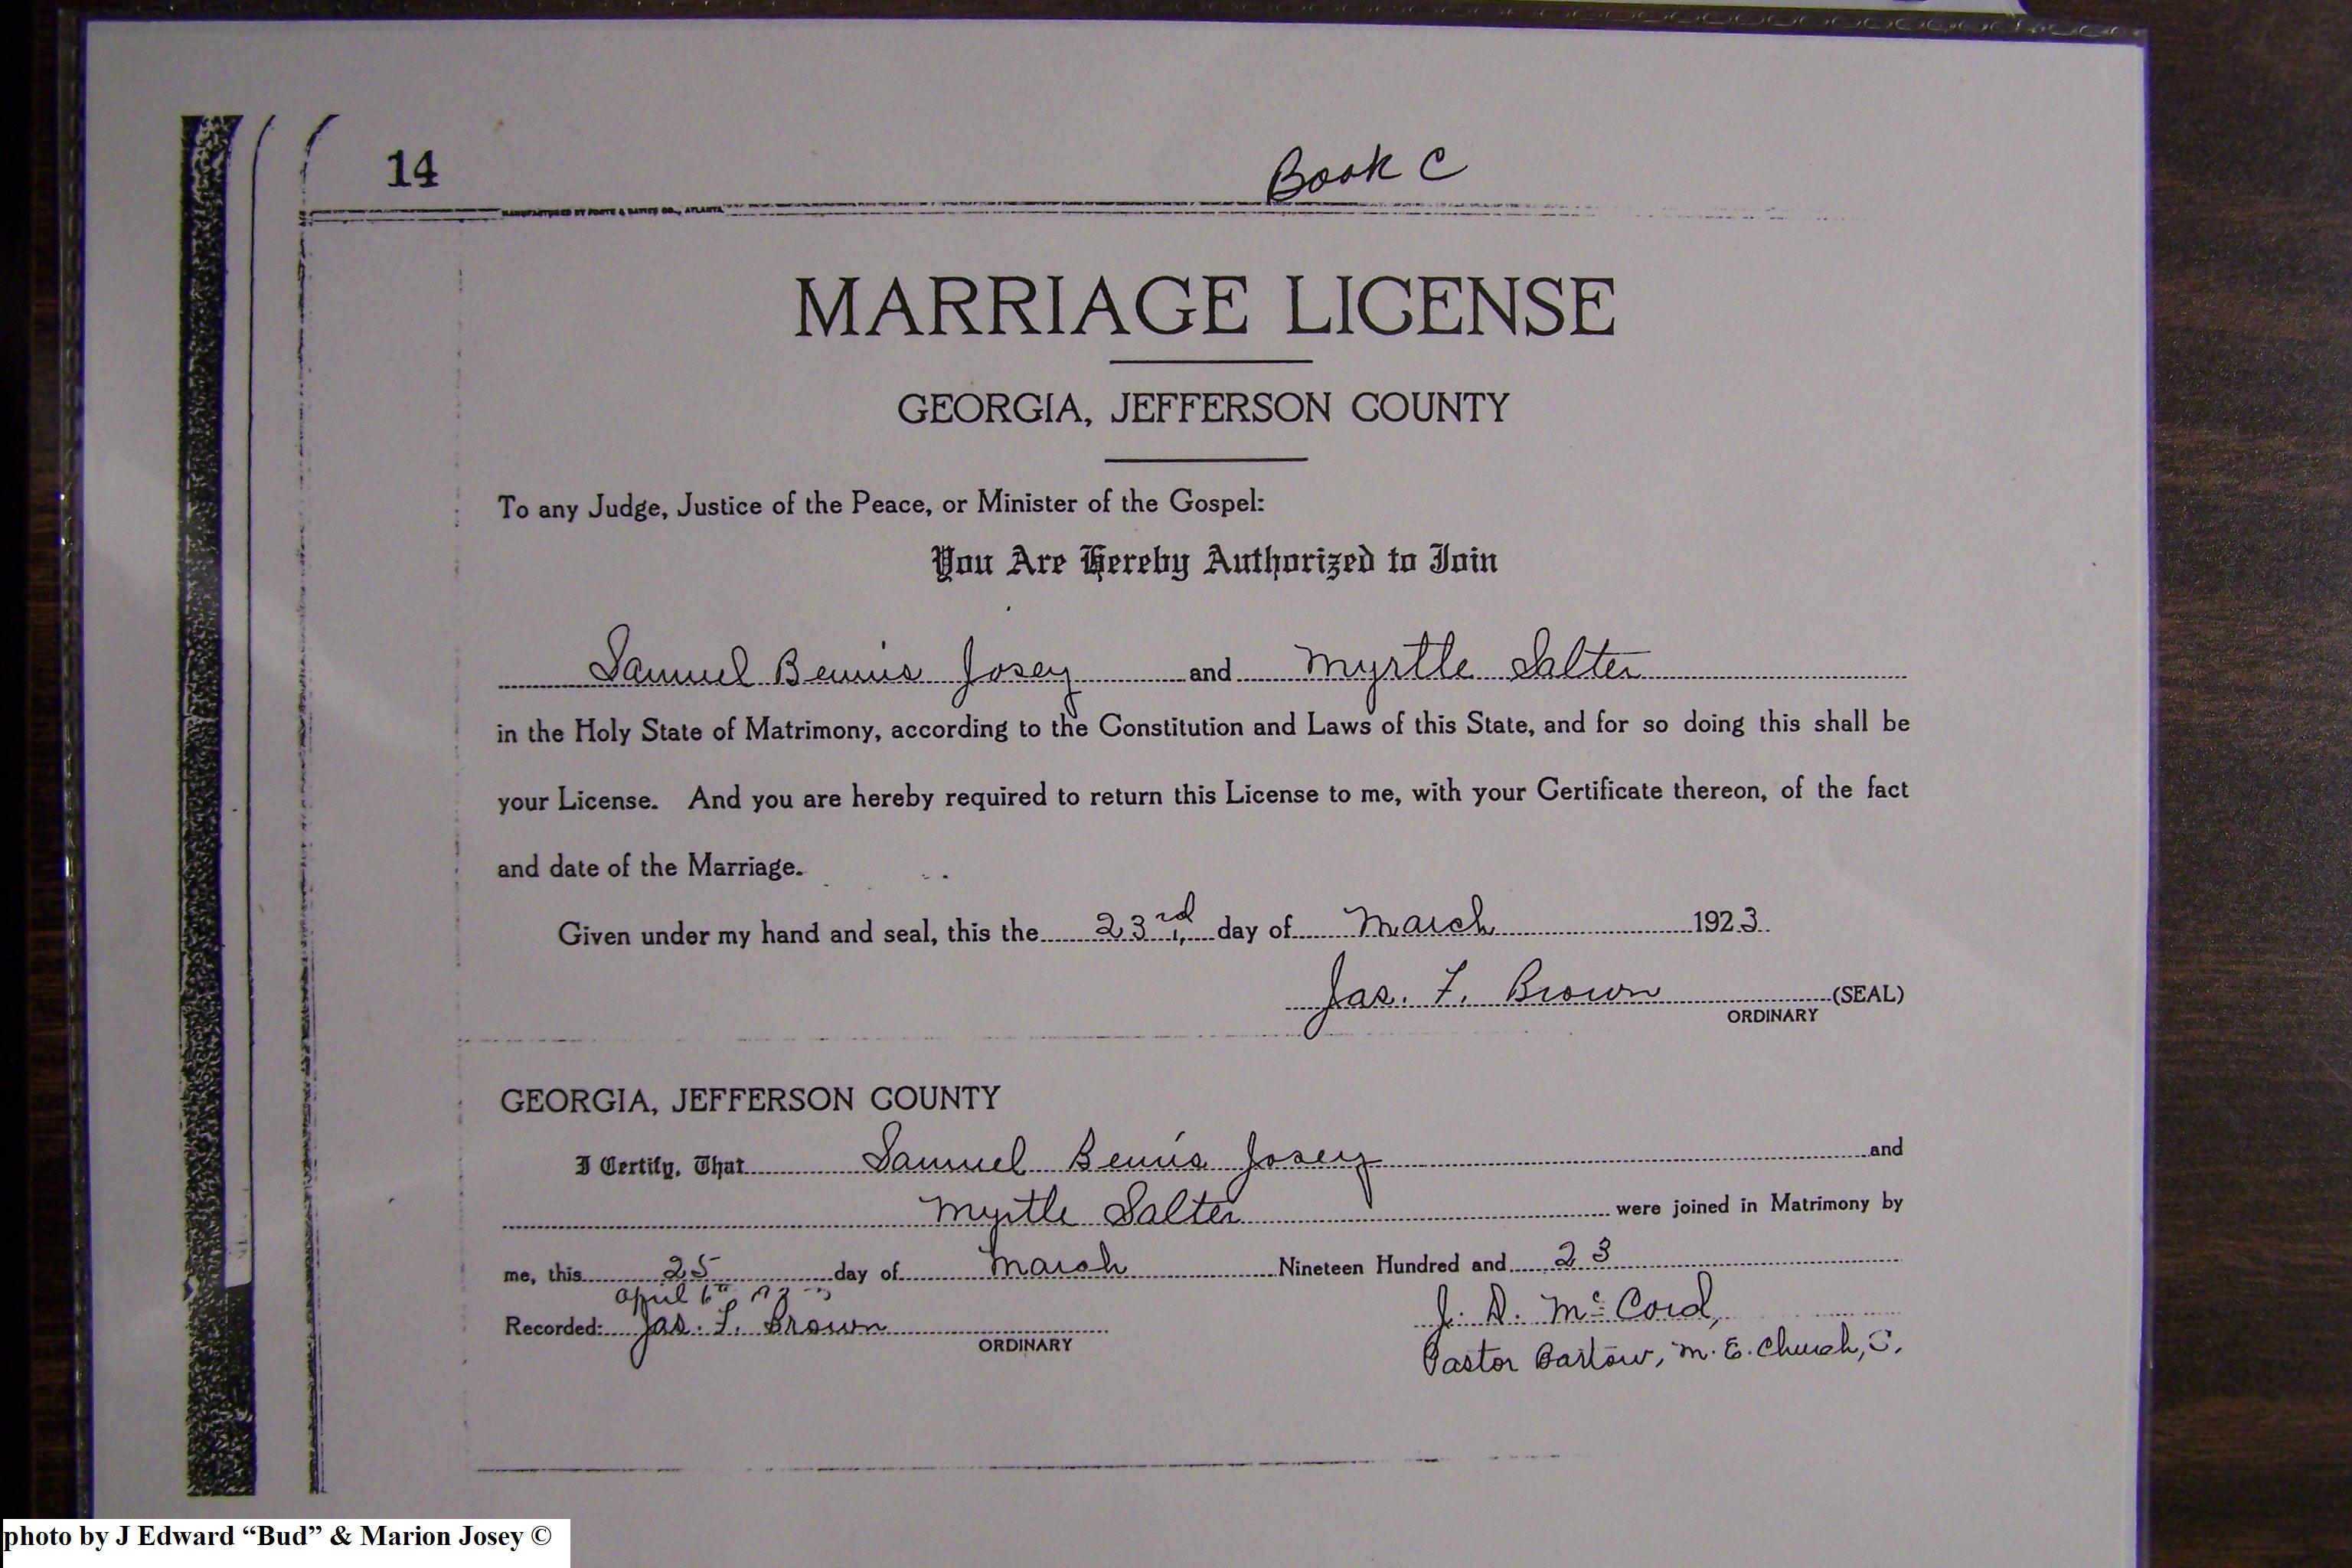 14
Book C
MANUFACTURED BY FOOTE & DAVIES CO., ATLANTA
MARRIAGE LICENSE
GEORGIA, JEFFERSON COUNTY
To any Judge, Justice of the Peace, or Minister of the Gospel:
You Are Hereby Authorized to Join
Samuel Bennis Josey and Myrtle Salter
in the Holy State of Matrimony, according to the Constitution and Laws of this State, and for so doing this shall be
your License. And you are hereby required to return this License to me, with your Certificate thereon, of the fact
and date of the Marriage.
Given under my hand and seal, this the 23rd, day of March 1923.
Jas. F. Brown (SEAL)
ORDINARY
GEORGIA, JEFFERSON COUNTY
I Certify, That Samuel Bennis Josey and
Myrtle Salter were joined in Matrimony by
me, this 25 day of March Nineteen Hundred and 23
April 6th
J. D. McCord,
Recorded: Jas. F. Brown
ORDINARY
Pastor Bartow, M. E. Church, S.
photo by J Edward “Bud” & Marion Josey ©